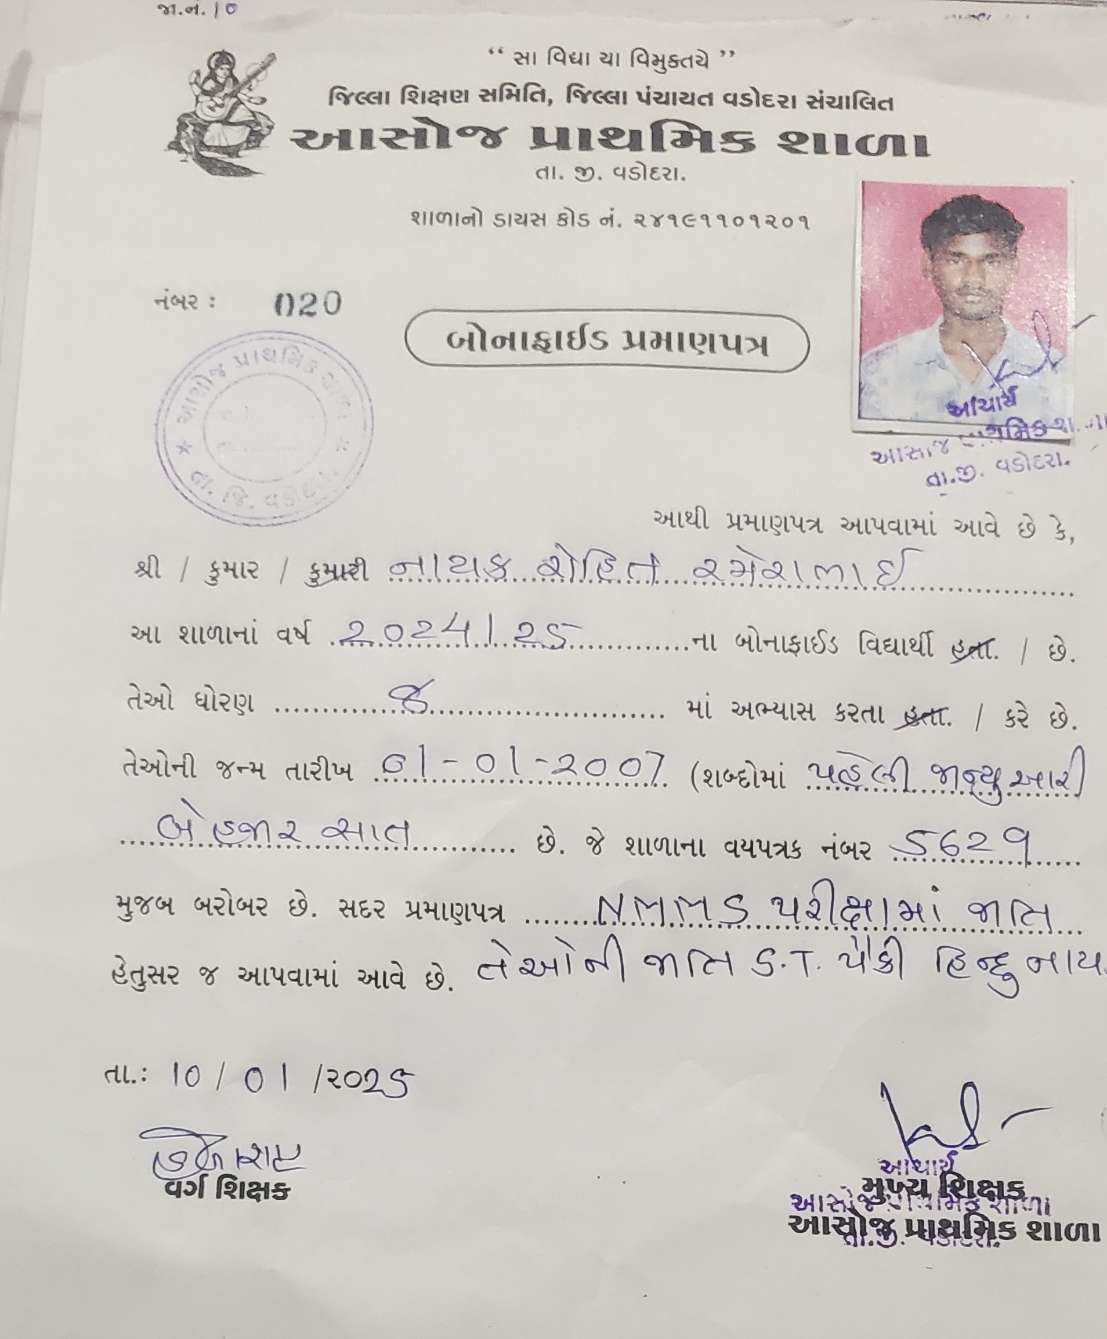 જા.નં. 10
“ સા વિદ્યા યા વિમુક્તયે ”
જિલ્લા શિક્ષણ સમિતિ, જિલ્લા પંચાયત વડોદરા સંચાલિત
આસોજ પ્રાથમિક શાળા
તા. જી. વડોદરા.
શાળાનો ડાયસ કોડ નં. ૨૪૧૯૧૧૦૧૨૦૧
નંબર : 020
બોનાફાઈડ પ્રમાણપત્ર
આસોજ પ્રાથમિક શાળા
તા. જિ. વડોદરા
આચાર્ય
આસોજ પ્રાથમિક શાળા
તા.જી. વડોદરા.
આથી પ્રમાણપત્ર આપવામાં આવે છે કે,
શ્રી / કુમાર / કુમારી નાયક રોહિત રમેશભાઈ
આ શાળાનાં વર્ષ 2024/25 ના બોનાફાઈડ વિદ્યાર્થી હતા. / છે.
તેઓ ધોરણ ૪ માં અભ્યાસ કરતા હતા. / કરે છે.
તેઓની જન્મ તારીખ 01-01-2007 (શબ્દોમાં પહેલી જાન્યુઆરી
બે હજાર સાત છે. જે શાળાના વયપત્રક નંબર 5629
મુજબ બરોબર છે. સદર પ્રમાણપત્ર NMMS પરીક્ષામાં જાતિ
હેતુસર જ આપવામાં આવે છે. તેઓની જાતિ S.T. પૈકી હિન્દુ નાય
તા.: 10/01/2025
વર્ગ શિક્ષક
આચાર્ય
મુખ્ય શિક્ષક
આસોજ પ્રાથમિક શાળા
આસોજ પ્રાથમિક શાળા
તા.જી. વડોદરા.